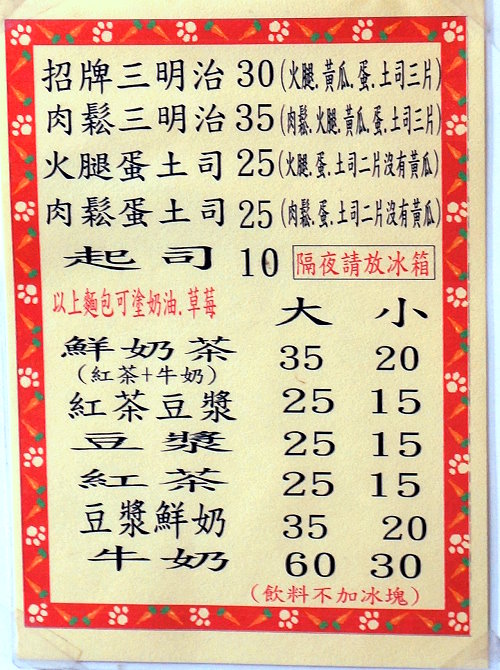 招牌三明治 30 (火腿.黃瓜.蛋.土司三片)
肉鬆三明治 35 (肉鬆.火腿.黃瓜.蛋.土司三片)
火腿蛋土司 25 (火腿.蛋.土司二片沒有黃瓜)
肉鬆蛋土司 25 (肉鬆.蛋.土司二片沒有黃瓜)
起司 10 隔夜請放冰箱
以上麵包可塗奶油.草莓
大 小
鮮奶茶 35 20
(紅茶+牛奶)
紅茶豆漿 25 15
豆漿 25 15
紅茶 25 15
豆漿鮮奶 35 20
牛奶 60 30
(飲料不加冰塊)